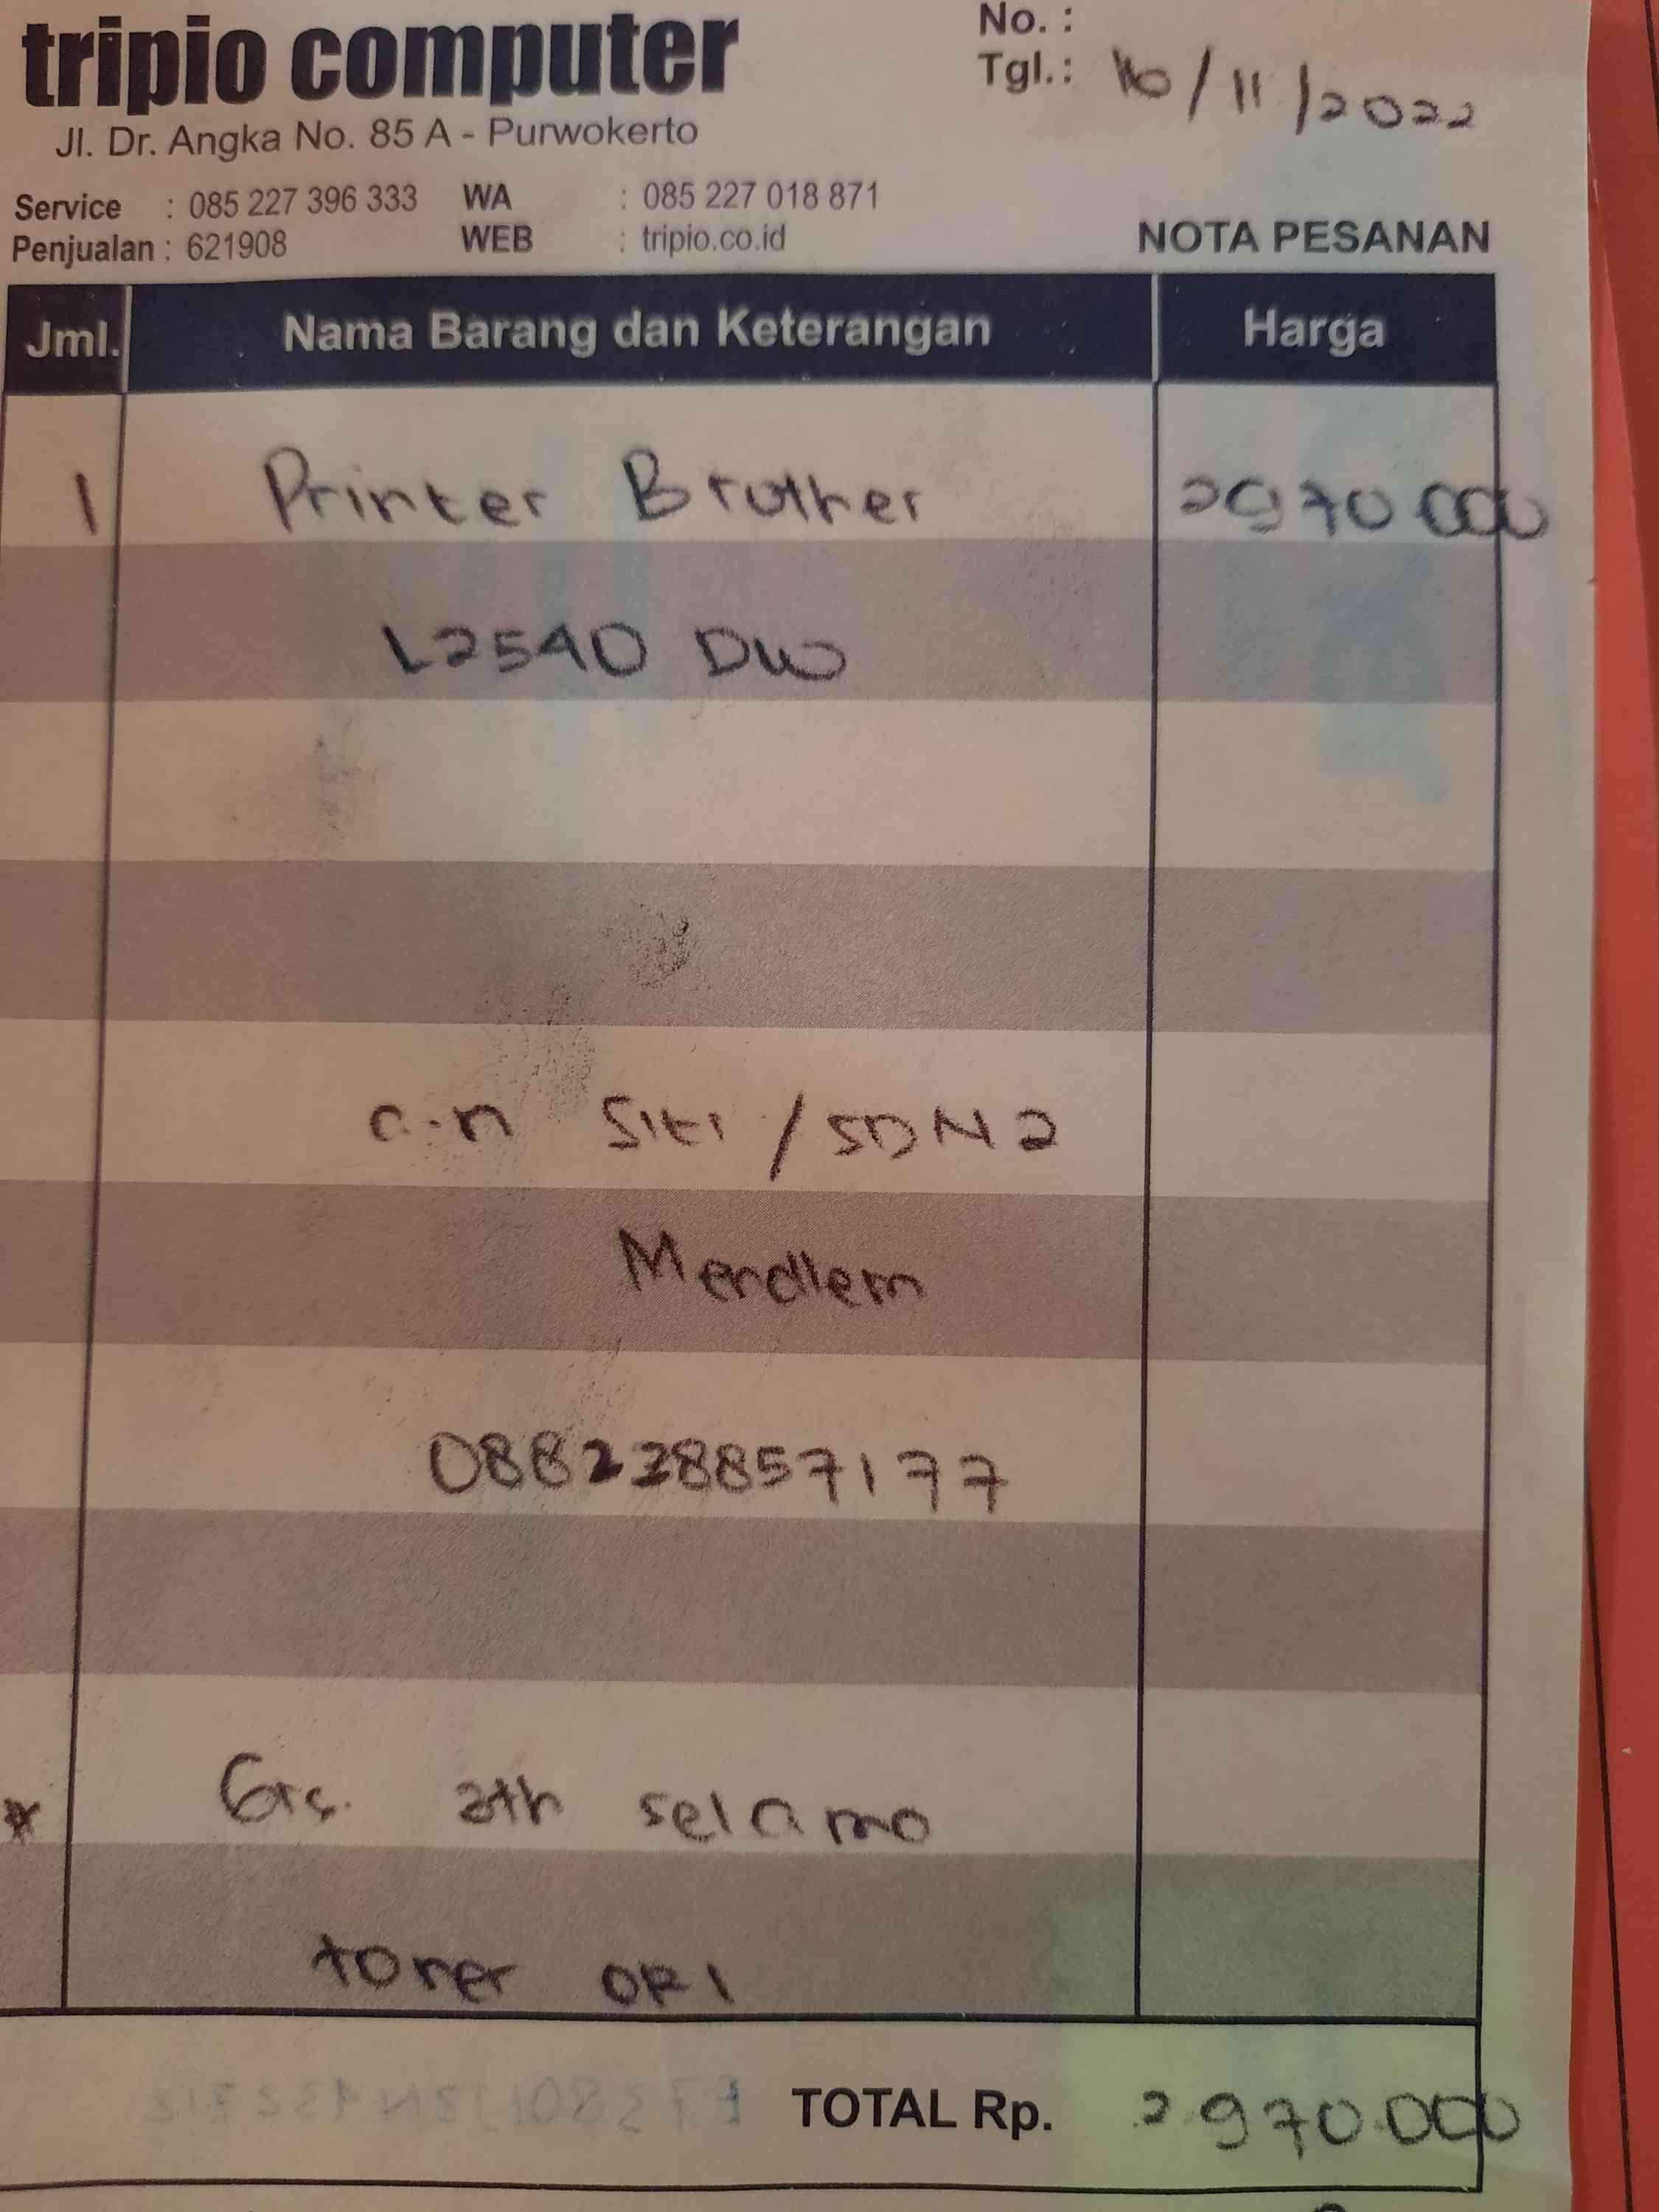 tripio computer
Jl. Dr. Angka No. 85 A - Purwokerto
No. :
Tgl.: 16/11/2022
Service : 085 227 396 333 WA : 085 227 018 871
Penjualan : 621908 WEB : tripio.co.id
NOTA PESANAN
Jml. Nama Barang dan Keterangan Harga
1 Printer Brother 2970.000
L2540 DW
a.n Siti / SDN 2
Merdlem
088228857177
* Grs. 2th selama
toner ORI
TOTAL Rp. 2.970.000